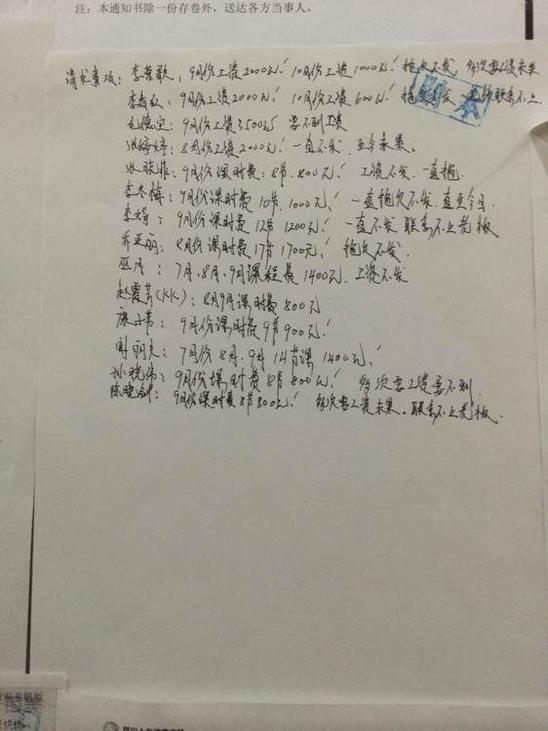 注：本通知书除一份存卷外，送达各方当事人。
请求事项：李 歌，9月份工资2000元！10月份工资1000元！拖欠不发 多次要工资未果
李 ：9月份工资2000元！10月份工资600元！拖欠不发 老板联系不上.
毛德宝：9月份工资3500元 要不到工资
张婷婷：8月份工资2000元！一直不发.至今未果。
张晓菲：9月份课时费：8节.800元！工资不发.一直拖.
李冬梅：9月份课时费10节.1000元！一直拖欠不发.直至今日.
李婷：9月份课时费12节1200元！一直不发.联系不上老板
乔亚丽：8月份课时费17节1700元！拖欠不发.
巫月：7月.8月.9月课程费1400元.工资不发
赵霞 (KK)：8月9月课时费800元
 ：9月份课时费9节900元！
谢丽 ：7月份8月.9月14节课1400元！
孙晓伟：9月份课时费8节800元！多次要工资要不到
陈晓剑：9月份课时费8节800元！多次要工资未果。联系不上老板.